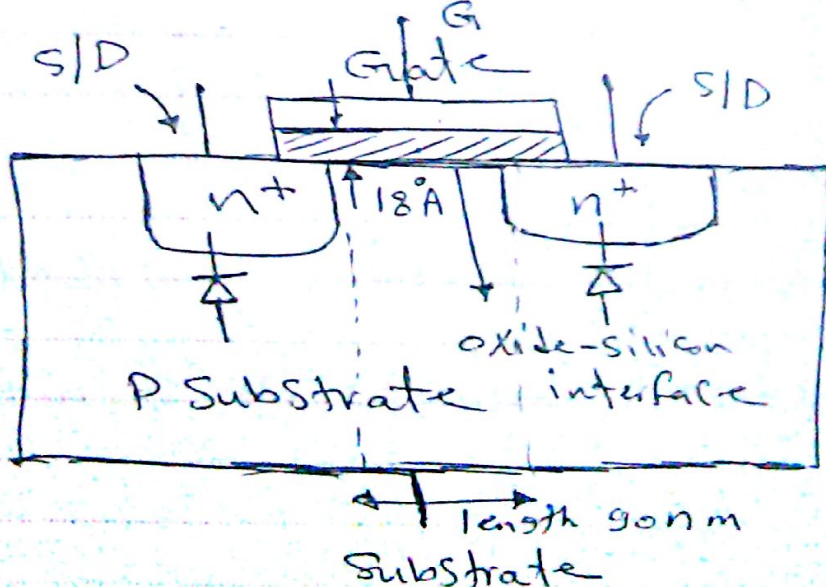 G
Gate
S/D
S/D
n+
18Å
n+
oxide-silicon
interface
P Substrate
length 90nm
Substrate